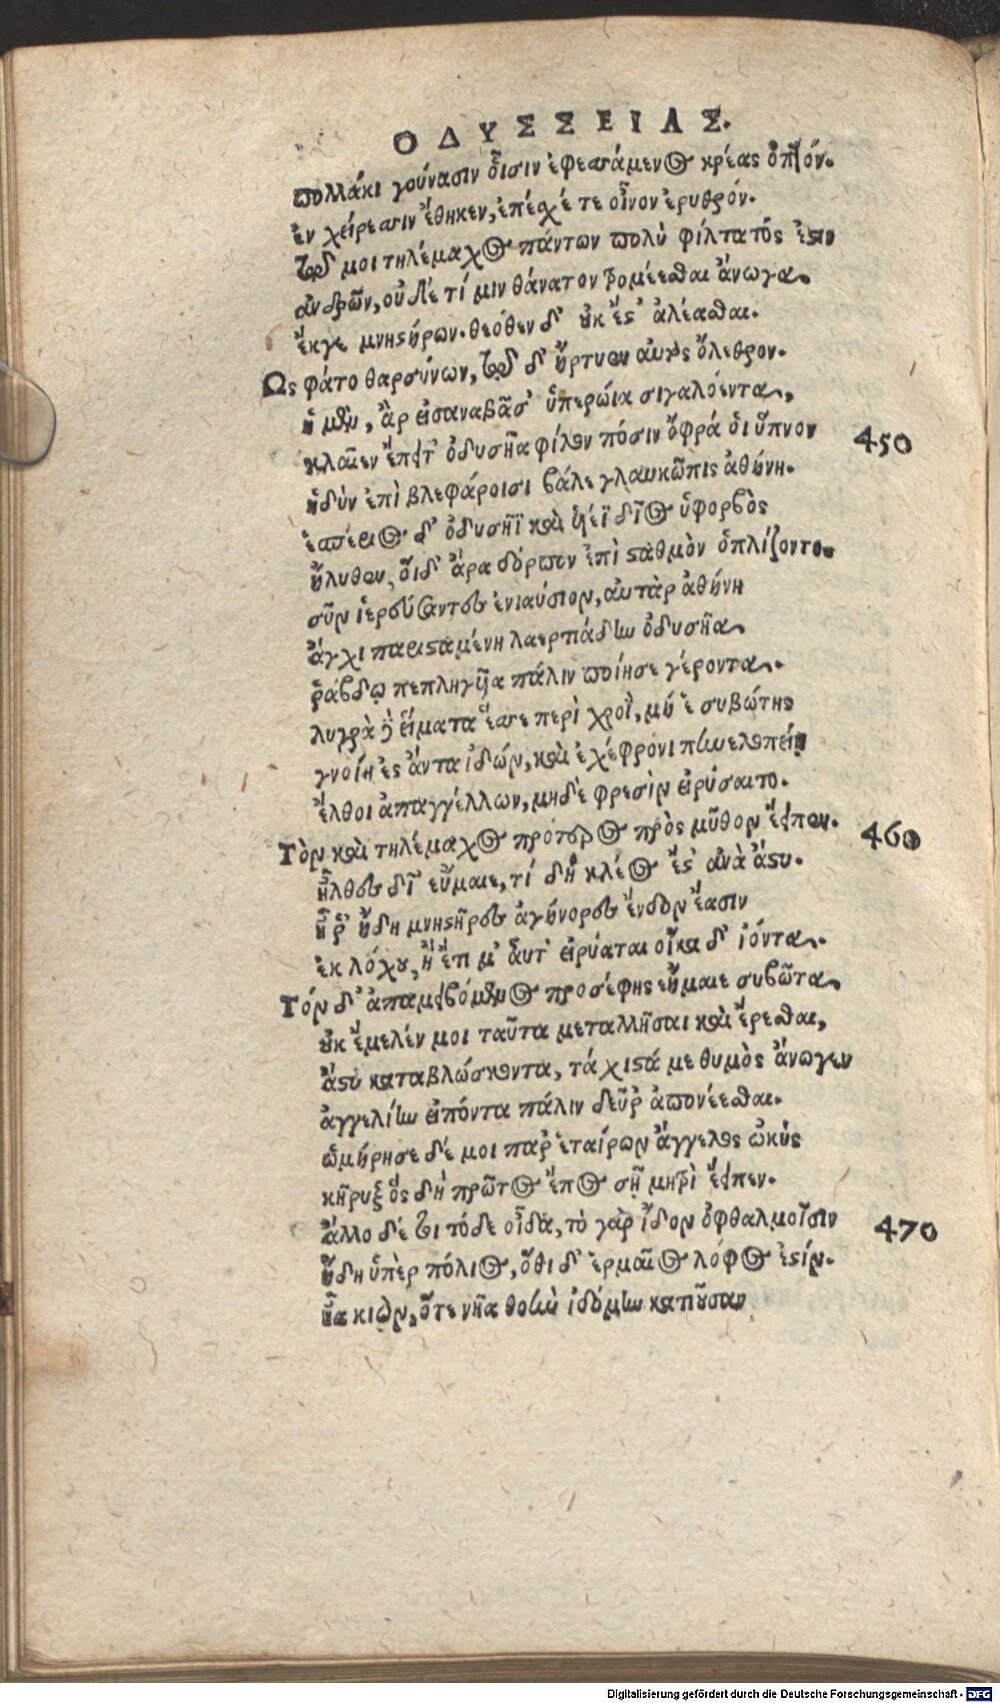 ΟΔΥΣΣΕΙΑΣ.
πολλάκι γούνασιν οἷσιν ἐφεσσάμενος κρέας ὀπτὸν.
ἐν χείρεσσιν ἔθηκεν, ἐπέσχέ τε οἶνον ἐρυθρόν.
τῷ μοι τηλέμαχος πάντων πολὺ φίλτατός ἐστιν
ἀνδρῶν, οὐδέ τί μιν θάνατον τρομέεσθαι ἄνωγα.
ἔκγε μνηστήρων. θεόθεν δ' οὐκ ἔστ' ἀλέασθαι.
Ως φάτο θαρσύνων, τῷ δ' ἤρτυεν αὐτὸς ὄλεθρον.
ἡ μὲν, ἂρ εἰσαναβᾶσ' ὑπερώϊα σιγαλόεντα,
κλαῖεν ἔπειτ' ὀδυσῆα φίλον πόσιν ὄφρά οἱ ὕπνον 450
ἡδὺν ἐπὶ βλεφάροισι βάλε γλαυκῶπις ἀθήνη.
ἑσπέριος δ' ὀδυσῆϊ καὶ υἱέϊ δῖος ὑφορβὸς
ἤλυθεν, οἵδ' ἄρα δόρπον ἐπὶ σταθμὸν ὁπλίζοντο.
σῦν ἱερεύσαντες ἐνιαύσιον, αὐτὰρ ἀθήνη
ἄγχι παρισταμένη λαερτιάδην ὀδυσῆα.
ῥάβδῳ πεπληγυῖα πάλιν ποίησε γέροντα.
λυγρὰ δὲ εἵματα ἕσσε περὶ χροῒ, μή ἑ συβώτης
γνοίη ἐς ἄντα ἰδών, καὶ ἐχέφρονι πηνελοπείῃ
ἔλθοι ἀπαγγέλλων, μηδὲ φρεσὶν εἰρύσαιτο.
Τὸν καὶ τηλέμαχος πρότερος πρὸς μῦθον ἔειπεν. 460
ἦλθες δῖ' εὔμαιε, τί δὴ κλέος ἔστ' ἀνὰ ἄστυ.
ἦ ῥ' ἤδη μνηστῆρες ἀγήνορες ἔνδον ἔασιν
ἐκ λόχου, ἢ ἔτι μ' αὖτ' εἰρύαται οἴκα δ' ἰόντα.
Τόν δ' ἀπαμειβόμενος προσέφης εὔμαιε συβῶτα
οὐκ ἔμελέν μοι ταῦτα μεταλλῆσαι καὶ ἔρεσθαι,
ἄστυ καταβλώσκοντα, τάχιστά με θυμὸς ἄνωγεν
ἀγγελίην εἰπόντα πάλιν δεῦρ' ἀπονέεσθαι.
ὡμήρησε δέ μοι παρ' ἑταίρων ἄγγελος ὠκὺς
κῆρυξ ὅς δὴ πρῶτος ἔπος σῇ μητρὶ ἔειπεν.
ἄλλο δέ τι τόδε οἶδα, τὸ γὰρ ἴδον ὀφθαλμοῖσιν 470
ἤδη ὑπὲρ πόλιος, ὅθι δ' ἑρμαῖος λόφος ἐστίν.
ἦα κιὼν, ὅτε νῆα θοὴν ἰδόμην κατιοῦσαν
Digitalisierung gefördert durch die Deutsche Forschungsgemeinschaft - DFG